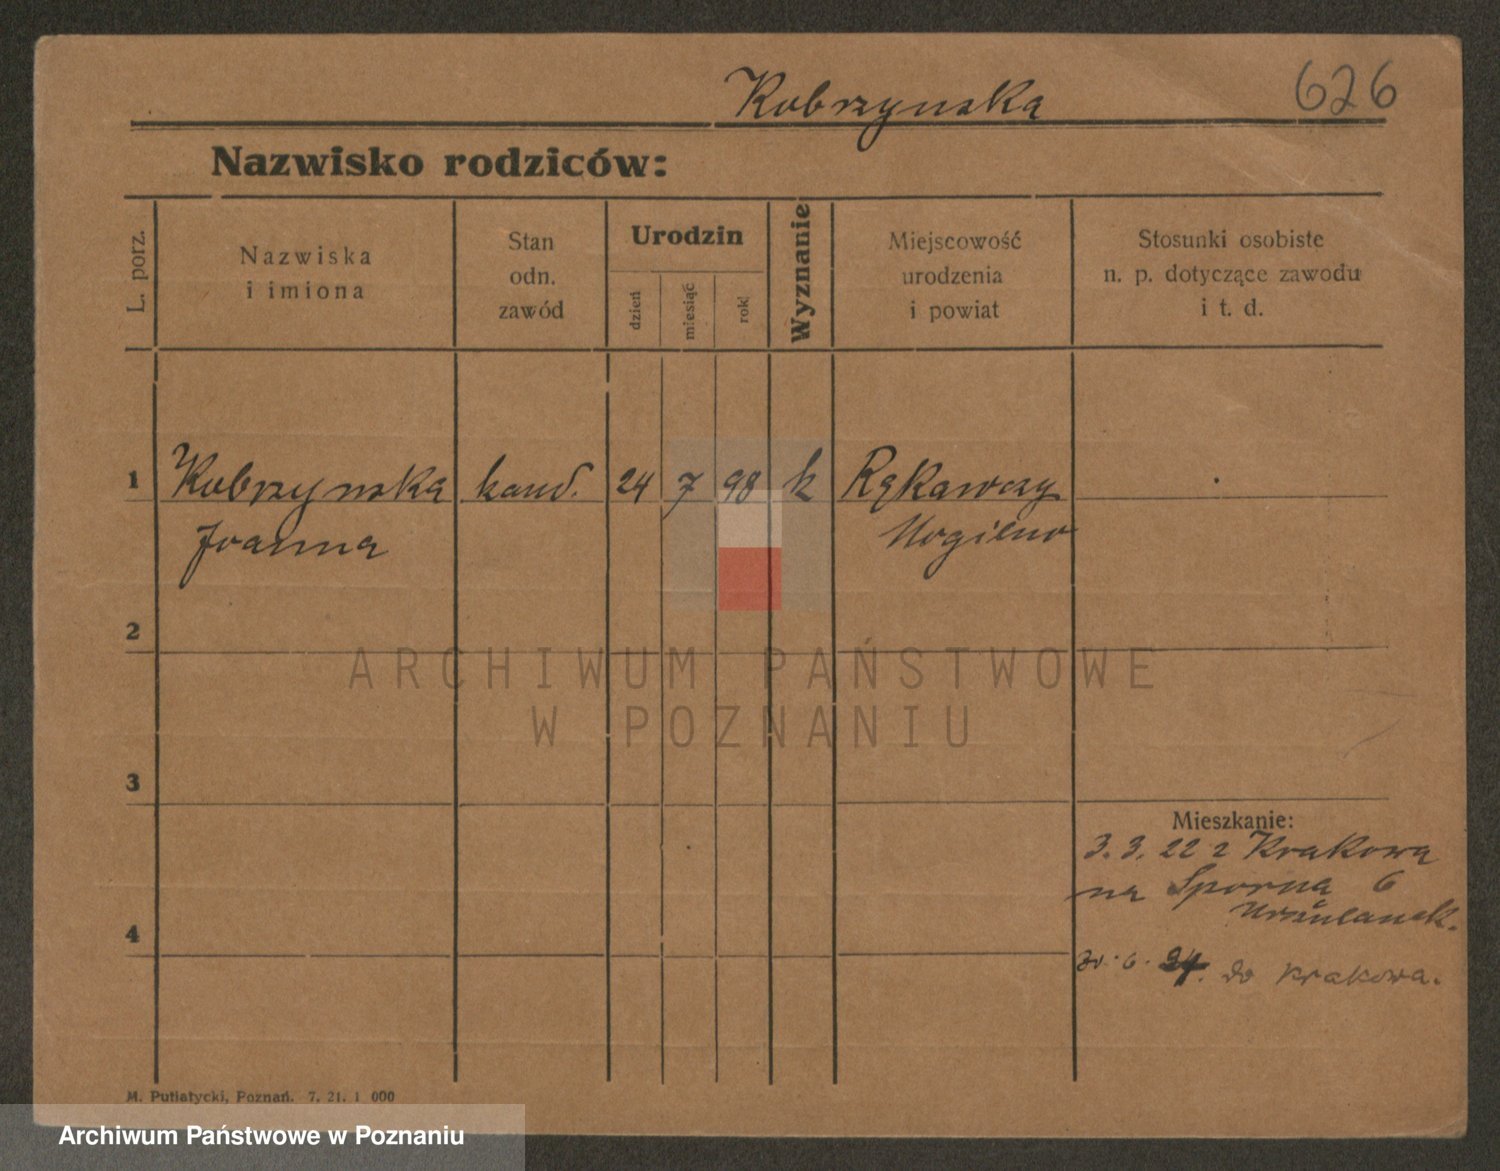 Kobrzynska 626
Nazwisko rodziców:
L. porz.
Nazwiska
i imiona
Stan
odn.
zawód
Urodzin
dzień
miesiąc
rok
Wyznanie
Miejscowość
urodzenia
i powiat
Stosunki osobiste
n. p. dotyczące zawodu
i t. d.
1 Kobrzynska 24 7 98 k Rękawczy
Joanna Mogilno
2
ARCHIWUM PAŃSTWOWE
W POZNANIU
3
Mieszkanie:
3. 3. 22 z Krakowa
na Sporna 6
Urszulanek.
4
30. 6. 24. do Krakowa.
M. Putiatycki, Poznań. 7. 21. 1 000
Archiwum Państwowe w Poznaniu